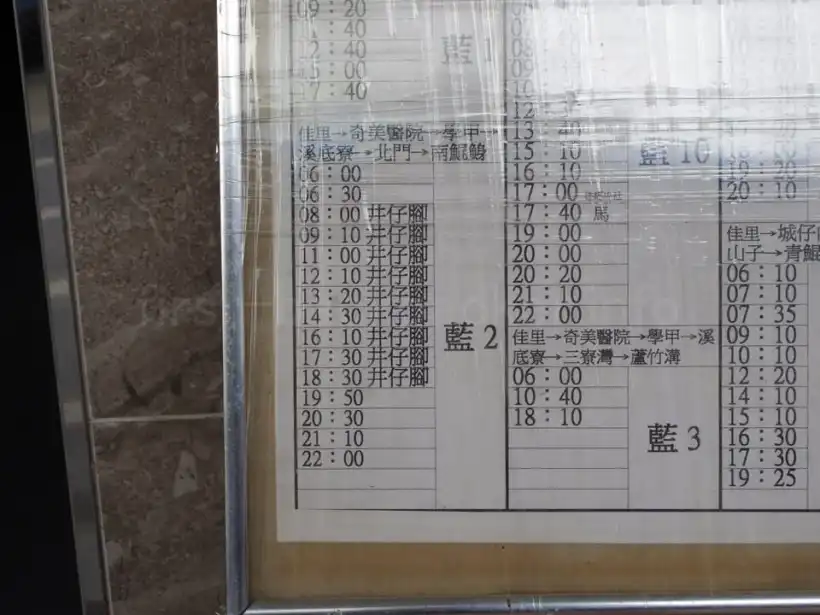 09：20
40
40
00
17：40
藍 1
佳里→奇美醫院→學甲→
溪底寮→北門→南鯤鯓
06：00
06：30
08：00 井仔腳
09：10 井仔腳
11：00 井仔腳
12：10 井仔腳
13：20 井仔腳
14：30 井仔腳
16：10 井仔腳
17：30 井仔腳
18：30 井仔腳
19：50
20：30
21：10
22：00
藍 2
13：40
15：10
16：10
17：00
17：40 馬
19：00
20：00
20：20
21：10
22：00
藍 10
佳里→奇美醫院→學甲→溪
底寮→三寮灣→蘆竹溝
06：00
10：40
18：10
藍 3
20：10
佳里→城仔
山子→青鯤
06：10
07：10
07：35
09：10
10：10
12：20
14：10
15：10
16：30
17：30
19：25